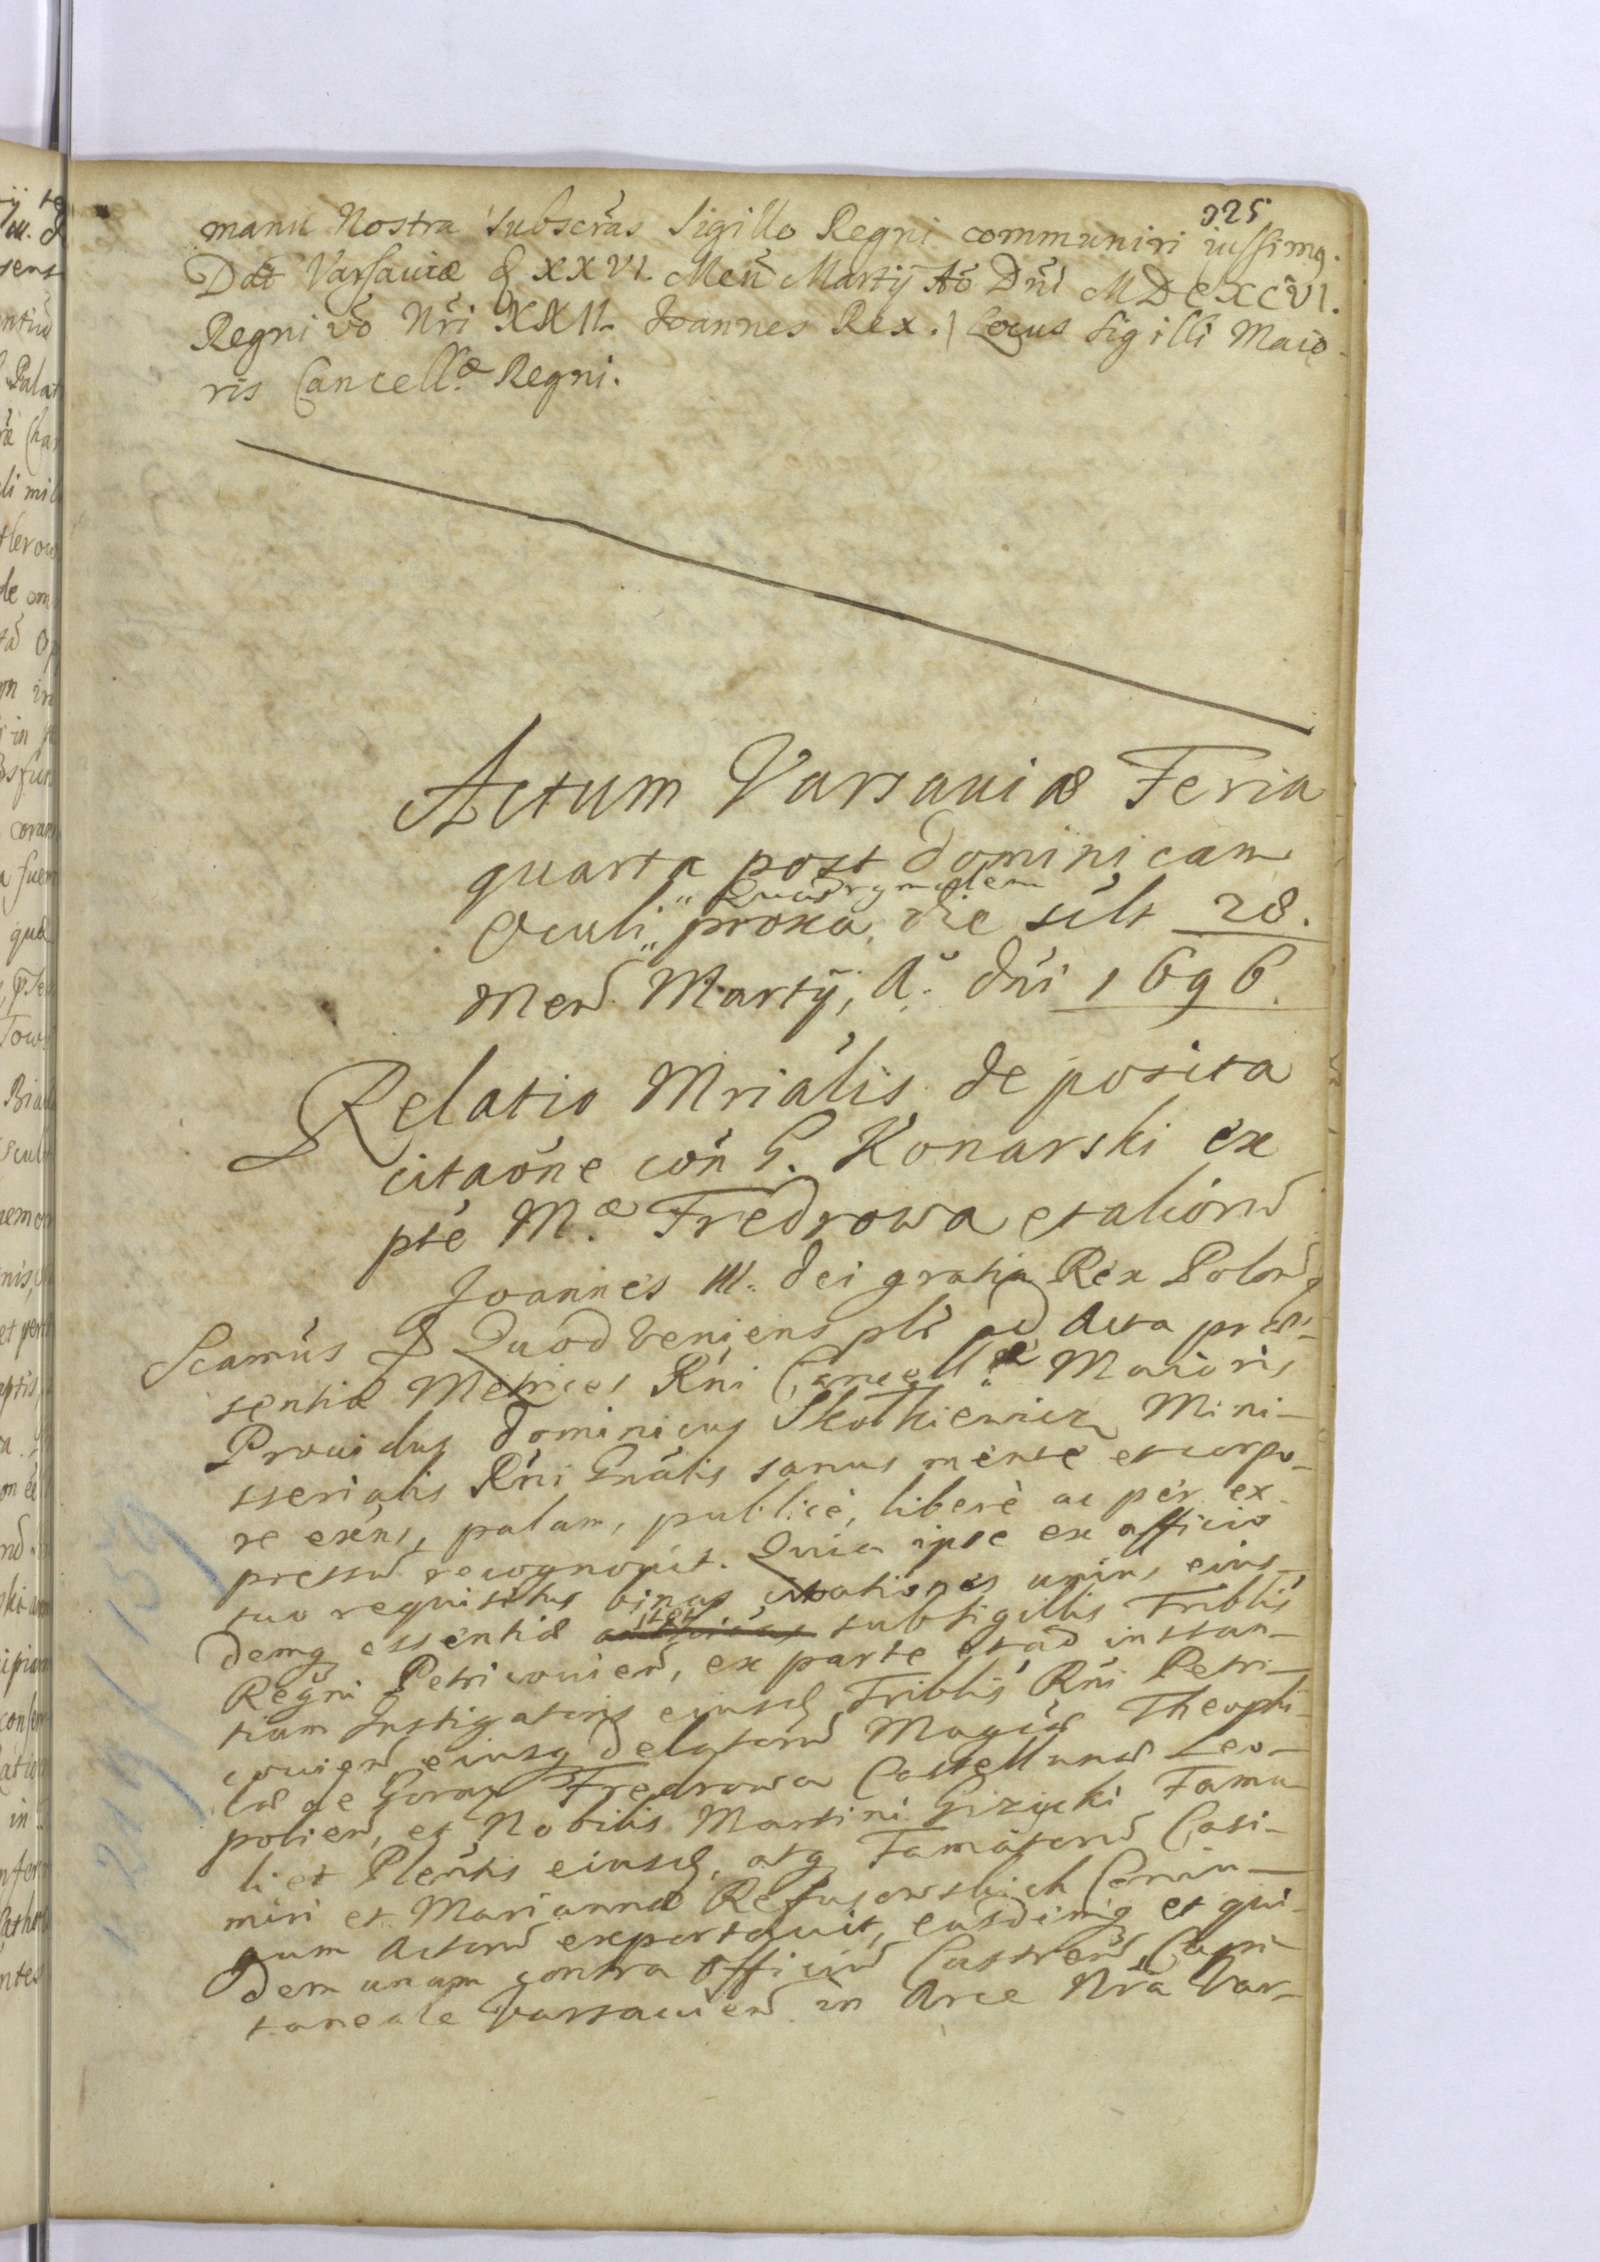 325
manu Nostra subscras Sigillo Regni communiri iussimq.
Dat Varsauiæ d XXVI. Men Martij Ao Dni MDCXCVI.
Regni vo Nri XXII. Joannes Rex. Locus Sigilli Maio-
ris Cancellæ Regni.
Actum Varsauiæ Feria
quarta post dominicam
Oculi Quadrgmalem proxa, die silt 28.
Men Martij, Ao dni 1696.
Relatio Mrialis deposita
citaone con G. Konarski ex
pte Mæ Fredrowa et aliorum
Joannes III. dei gratia Rex Polon
Scamus Quod Veniens plr ad Acta præ-
sentia Metrices Rni Cancellæ Maioris
Prouidus Dominicus Skotkiewicz Mini-
sterialis Rni Gnalis sanus mente et corpo-
re exens, palam, publicè, liberè ac per ex-
pressum recognouit. Quia ipse ex officio
suo requisitus binas citationes unius eius-
demq essentiæ subsigillis Triblis
Regni Petricouien, ex parte et ad instan-
tiam Instigatoris eiusd Triblis Rni Petri-
couien, eiusq delatorum Magcæ Theophi-
læ de Goray Fredrowa Castellanæ Leo-
polien, et Nobilis Martini Gizycki Famu-
li et Plentis eiusd, atq Famatorum Casi-
miri et Mariannæ Refusowskich Coniu-
gum Actorum exportauit, easdemq et qui-
dem unam contra Officium Castren, Capi-
taneale Varsauien in Arce Nra Var-